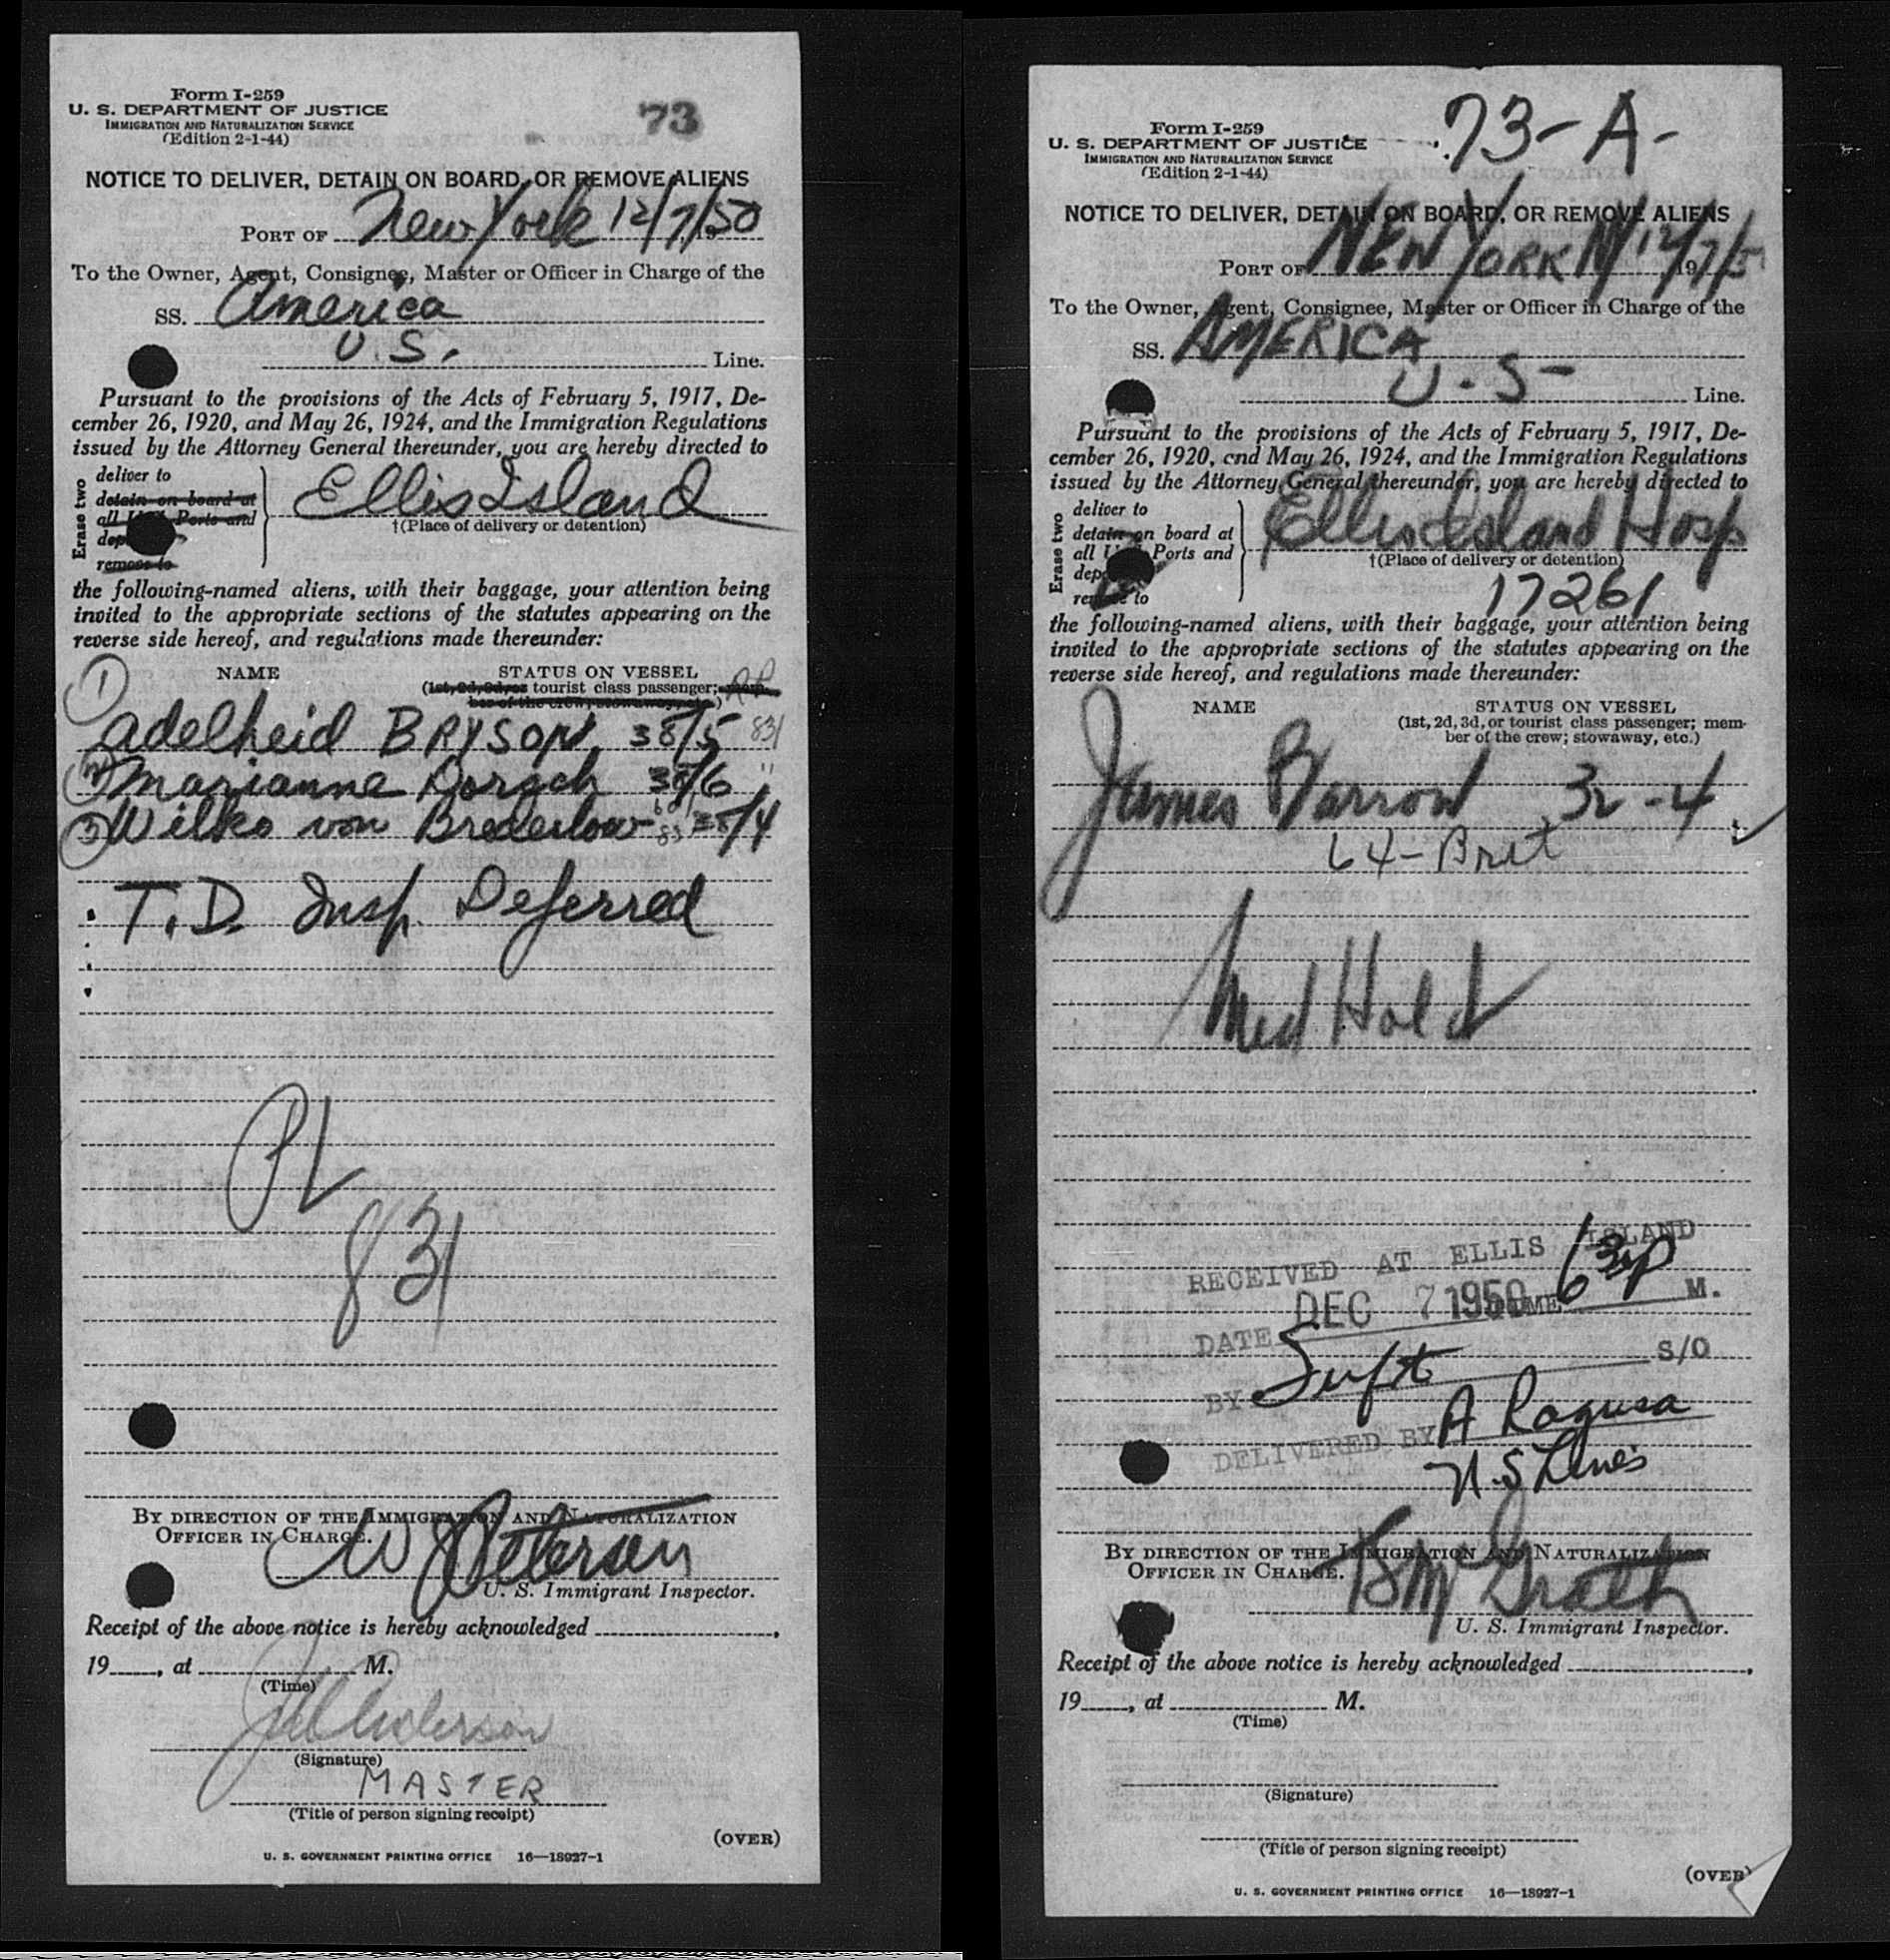 Form I-259
U. S. DEPARTMENT OF JUSTICE
IMMIGRATION AND NATURALIZATION SERVICE
(Edition 2-1-44)
73
NOTICE TO DELIVER, DETAIN ON BOARD, OR REMOVE ALIENS
PORT OF New York 12/7/50
To the Owner, Agent, Consignee, Master or Officer in Charge of the
SS. America
U.S. Line.
Pursuant to the provisions of the Acts of February 5, 1917, De-
cember 26, 1920, and May 26, 1924, and the Immigration Regulations
issued by the Attorney General thereunder, you are hereby directed to
Erase two
deliver to
detain on board at
all Ports and
dep
remove to
Ellis Island
†(Place of delivery or detention)
the following-named aliens, with their baggage, your attention being
invited to the appropriate sections of the statutes appearing on the
reverse side hereof, and regulations made thereunder:
NAME STATUS ON VESSEL
(1st, 2d, 3d, or tourist class passenger; mem-
ber of the crew; stowaway, etc.)
1 Adelheid BRYSON 38/5 831
Marianne Dorsch 38/6 "
3 Wilko von Brederlow 38/4
T.D. Insp. Deferred
831
BY DIRECTION OF THE IMMIGRATION AND NATURALIZATION
OFFICER IN CHARGE.
W Peterson
U. S. Immigrant Inspector.
Receipt of the above notice is hereby acknowledged
19, at M.
(Time)
(Signature)
MASTER
(Title of person signing receipt)
(OVER)
U. S. GOVERNMENT PRINTING OFFICE 16—18927-1
Form I-259
U. S. DEPARTMENT OF JUSTICE
IMMIGRATION AND NATURALIZATION SERVICE
(Edition 2-1-44)
73-A-
NOTICE TO DELIVER, DETAIN ON BOARD, OR REMOVE ALIENS
PORT OF NEW YORK N 12/7/5
To the Owner, Agent, Consignee, Master or Officer in Charge of the
SS. AMERICA
U.S- Line.
Pursuant to the provisions of the Acts of February 5, 1917, De-
cember 26, 1920, and May 26, 1924, and the Immigration Regulations
issued by the Attorney General thereunder, you are hereby directed to
Erase two
deliver to
detain on board at
all U Ports and
dep
remove to
Ellis Island Hosp
†(Place of delivery or detention)
17261
the following-named aliens, with their baggage, your attention being
invited to the appropriate sections of the statutes appearing on the
reverse side hereof, and regulations made thereunder:
NAME STATUS ON VESSEL
(1st, 2d, 3d, or tourist class passenger; mem-
ber of the crew; stowaway, etc.)
James Barron 32-4
64-Brit
Med Hold
RECEIVED AT ELLIS ISLAND
DATE DEC 7 1950 TIME 6 30p M.
BY S/O
DELIVERED BY A Ragusa
U.S Lines
BY DIRECTION OF THE IMMIGRATION AND NATURALIZATION
OFFICER IN CHARGE.
McGrath
U. S. Immigrant Inspector.
Receipt of the above notice is hereby acknowledged
19, at M.
(Time)
(Signature)
(Title of person signing receipt)
(OVER)
U. S. GOVERNMENT PRINTING OFFICE 16—18927-1